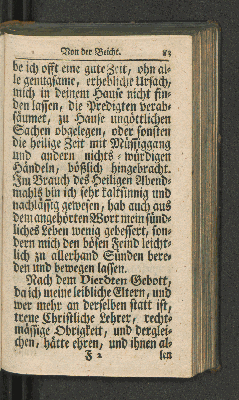 Von der Beicht. 83
be ich offt eine gute Zeit, ohn al-
le genugsame, erhebliche Ursach,
mich in deinem Hause nicht fin-
den lassen, die Predigten verab-
säumet, zu Hause ungöttlichen
Sachen obgelegen, oder sonsten
die heilige Zeit mit Müssiggang
und andern nichts-würdigen
Händeln, bößlich hingebracht.
Im Brauch des Heiligen Abend-
mahls bin ich sehr kaltsinnig und
nachlässig gewesen, hab auch aus
dem angehörten Wort mein sünd-
liches Leben wenig gebessert, son-
dern mich den bösen Feind leicht-
lich zu allerhand Sünden bere-
den und bewegen lassen.
Nach dem Vierdten Gebott,
da ich meine leibliche Eltern, und
wer mehr an derselben statt ist,
treue Christliche Lehrer, recht-
mässige Obrigkeit, und derglei-
chen, hätte ehren, und ihnen al-
F 2 len